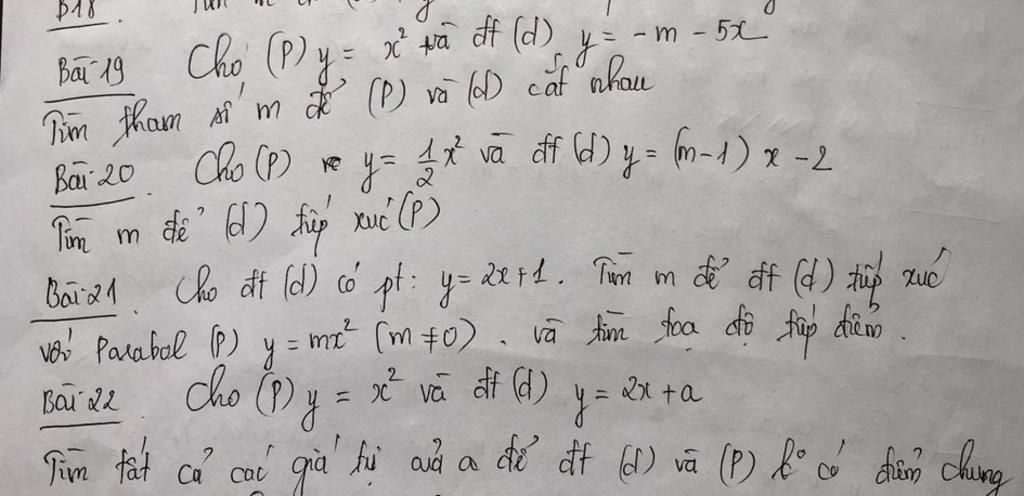 B18.
Bài 19 Cho (P) y = x² và đt (d) y = -m - 5x
Tìm tham số m để (P) và (d) cắt nhau
Bài 20 Cho (P) y = 1/2 x² và đt (d) y = (m-1) x - 2
Tìm m để (d) tiếp xúc (P)
Bài 21 Cho đt (d) có pt: y = 2x+1. Tìm m để đt (d) tiếp xúc
với Parabol (P) y = mx² (m ≠ 0). và tìm tọa độ tiếp điểm.
Bài 22 Cho (P) y = x² và đt (d) y = 2x + a
Tìm tất cả các giá trị của a để đt (d) và (P) k° có điểm chung